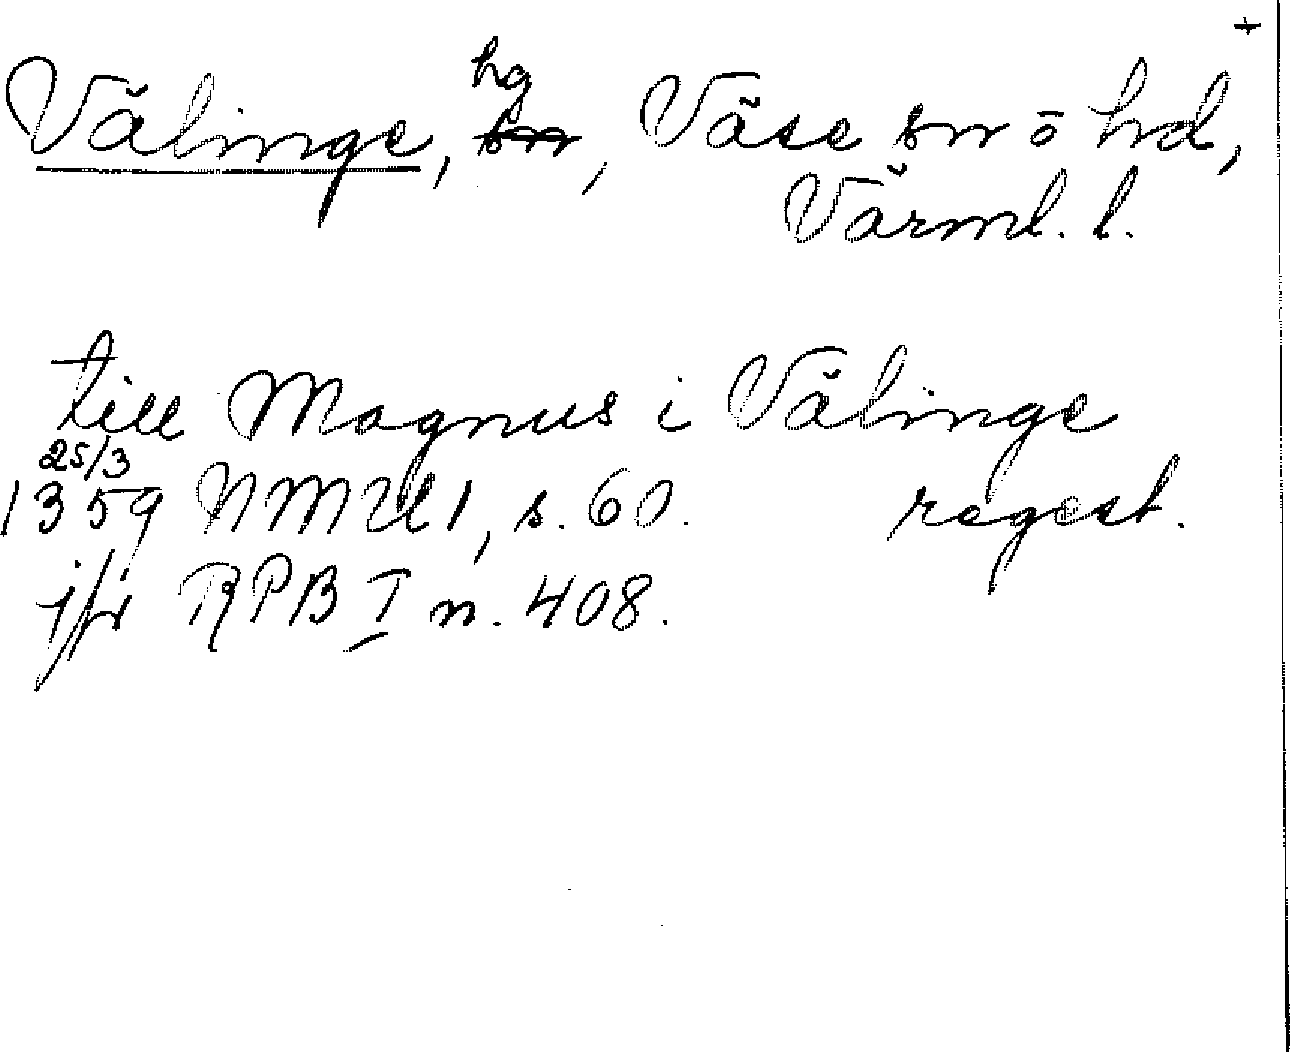 +
Välinge, hg, Väse sn ō hd,
Värml. l.
till Magnus i Välinge
25/3
1359 NMU 1, s. 60. regest.
jfr RPB I n. 408.